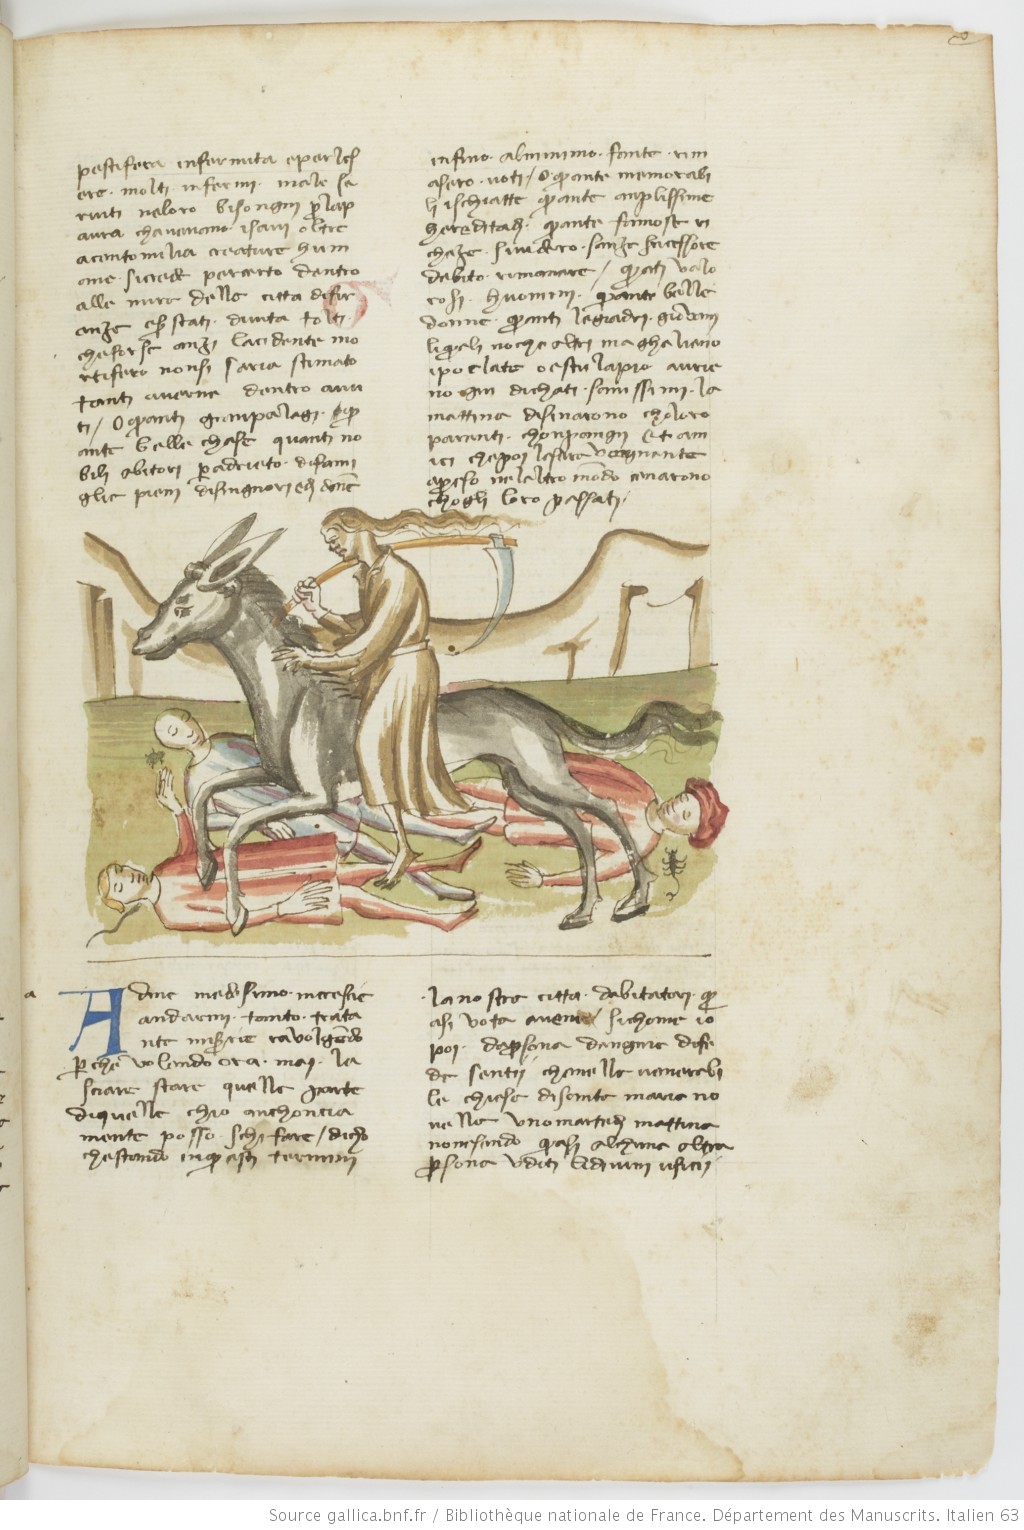 pestifera infermita eperless
ere. molti infermi. male se
ruiti neloro bisongni p lap
aura chaueuano isani oltre
acentomilia creature hum
ane. sicrede percerto dentro
alle mura delle citta difir
enze eser stati. diuita tolti.
cheforse anzi lacidente mo
rtifero nonsi saria stimato
tanti auerne dentro auu
ti / O quanti granpalagi. qu
ante belle chase quanti no
bili abitori padrieto. difami
glie pieni disingnori ed done
infino. alminimo. fante. rim
asero. uoti / O quante memorabi
li ischiatte quante amplissime
hereditadi. quante famose ri
cheze. siuidero. sanze sucessore
debito. rimanere / quanti valo
rosi. huomini. quante belle
donne. quanti legiadri. gioueni
liquali noche altri ma ghalieno
ipocrate o esculapio aurie
no giudichati. sanissimi. la
mattina disinarono choloro
parenti. chonpangni et am
ici chepoi lasera vegnante
apreso nelaltro modo cenarono
chogli loro passati.
a
Adme medesimo. increscie
andarmi. tanto. trata
nte miserie rauolgendo
p che volendo ora. mai. la
sciare stare quelle parte
diquelle chio anchoncia
mente posso. schifare / dicho
chestando inquesti termini
la nostra citta. dabitatori. qu
asi vota auene / sichome io
poi. dapersona dengnia dife
de sentij chenella venerabi
le chiesa disanta maria no
uella uno martedi mattina
nonesendo quasi alchuna altra
persona uditi lidiuini uficii
Source gallica.bnf.fr / Bibliothèque nationale de France. Département des Manuscrits. Italien 63